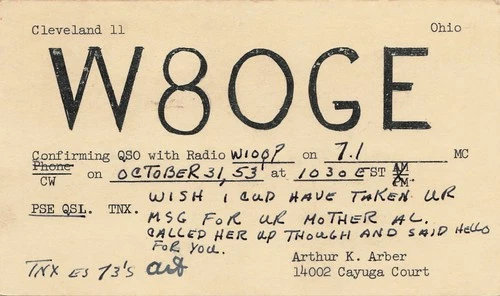 Cleveland 11 Ohio
W8OGE
Confirming QSO with Radio W1OQP on 7.1 MC
Phone
CW on OCTOBER 31, 53 at 1030 EST AM
PM.
PSE QSL. TNX. WISH I CUD HAVE TAKEN UR
MSG FOR UR MOTHER AL.
CALLED HER UP THOUGH AND SAID HELLO
FOR YOU.
TNX ES 73's Art
Arthur K. Arber
14002 Cayuga Court